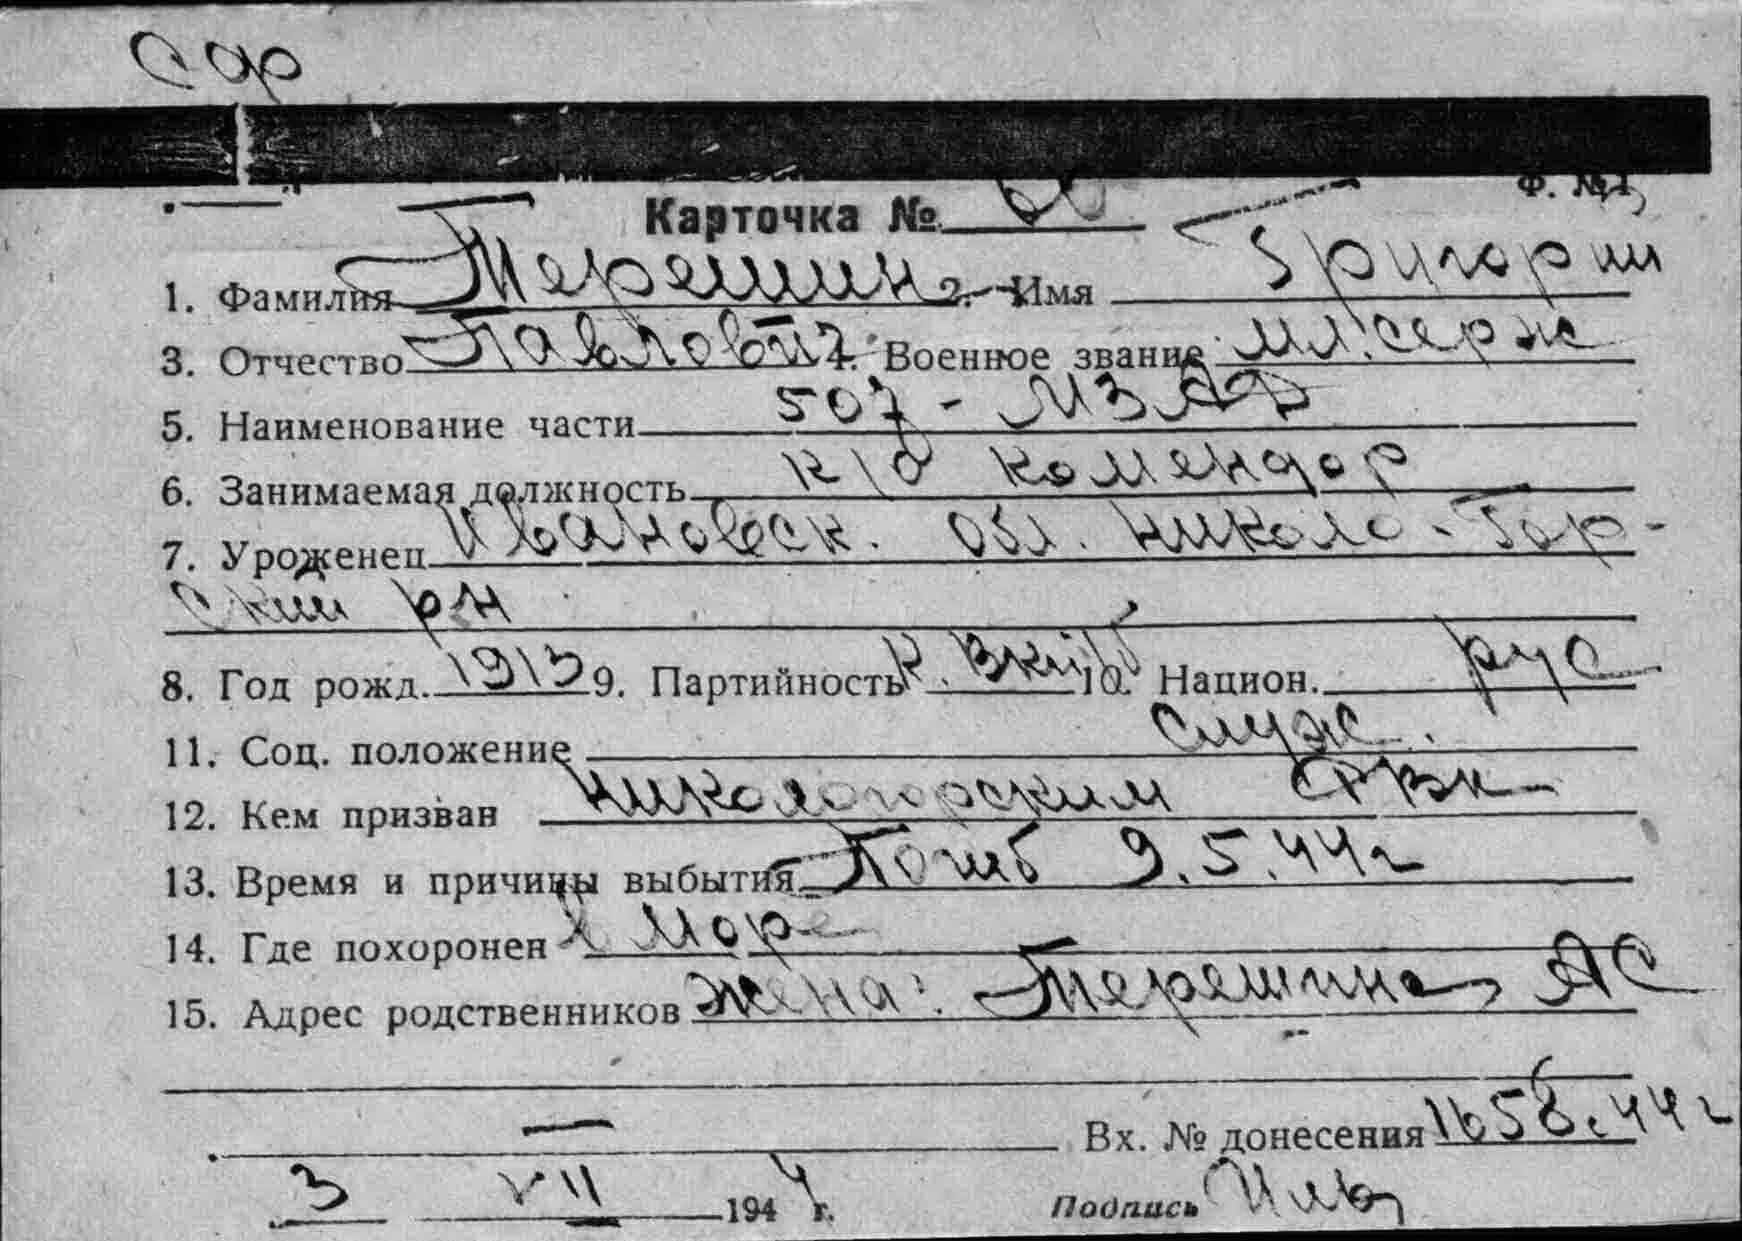 Сар
Ф. №
Карточка №
1. Фамилия Терешин 2. Имя Григорий
3. Отчество Павлович 4. Военное звание мл. серж
5. Наименование части 507 - МЗАД
6. Занимаемая должность к/о комендор
7. Уроженец Ивановск. обл. Николо-Гор-
ский р-н
8. Год рожд. 1913 9. Партийность К. ВКПб 10. Национ. рус
11. Соц. положение служ.
12. Кем призван Никологорским РВК
13. Время и причины выбытия Погиб 9.5.44г
14. Где похоронен В море
15. Адрес родственников жена: Терешина АС
Вх. № донесения 1658.44г
3 VII 1944 г. Подпись